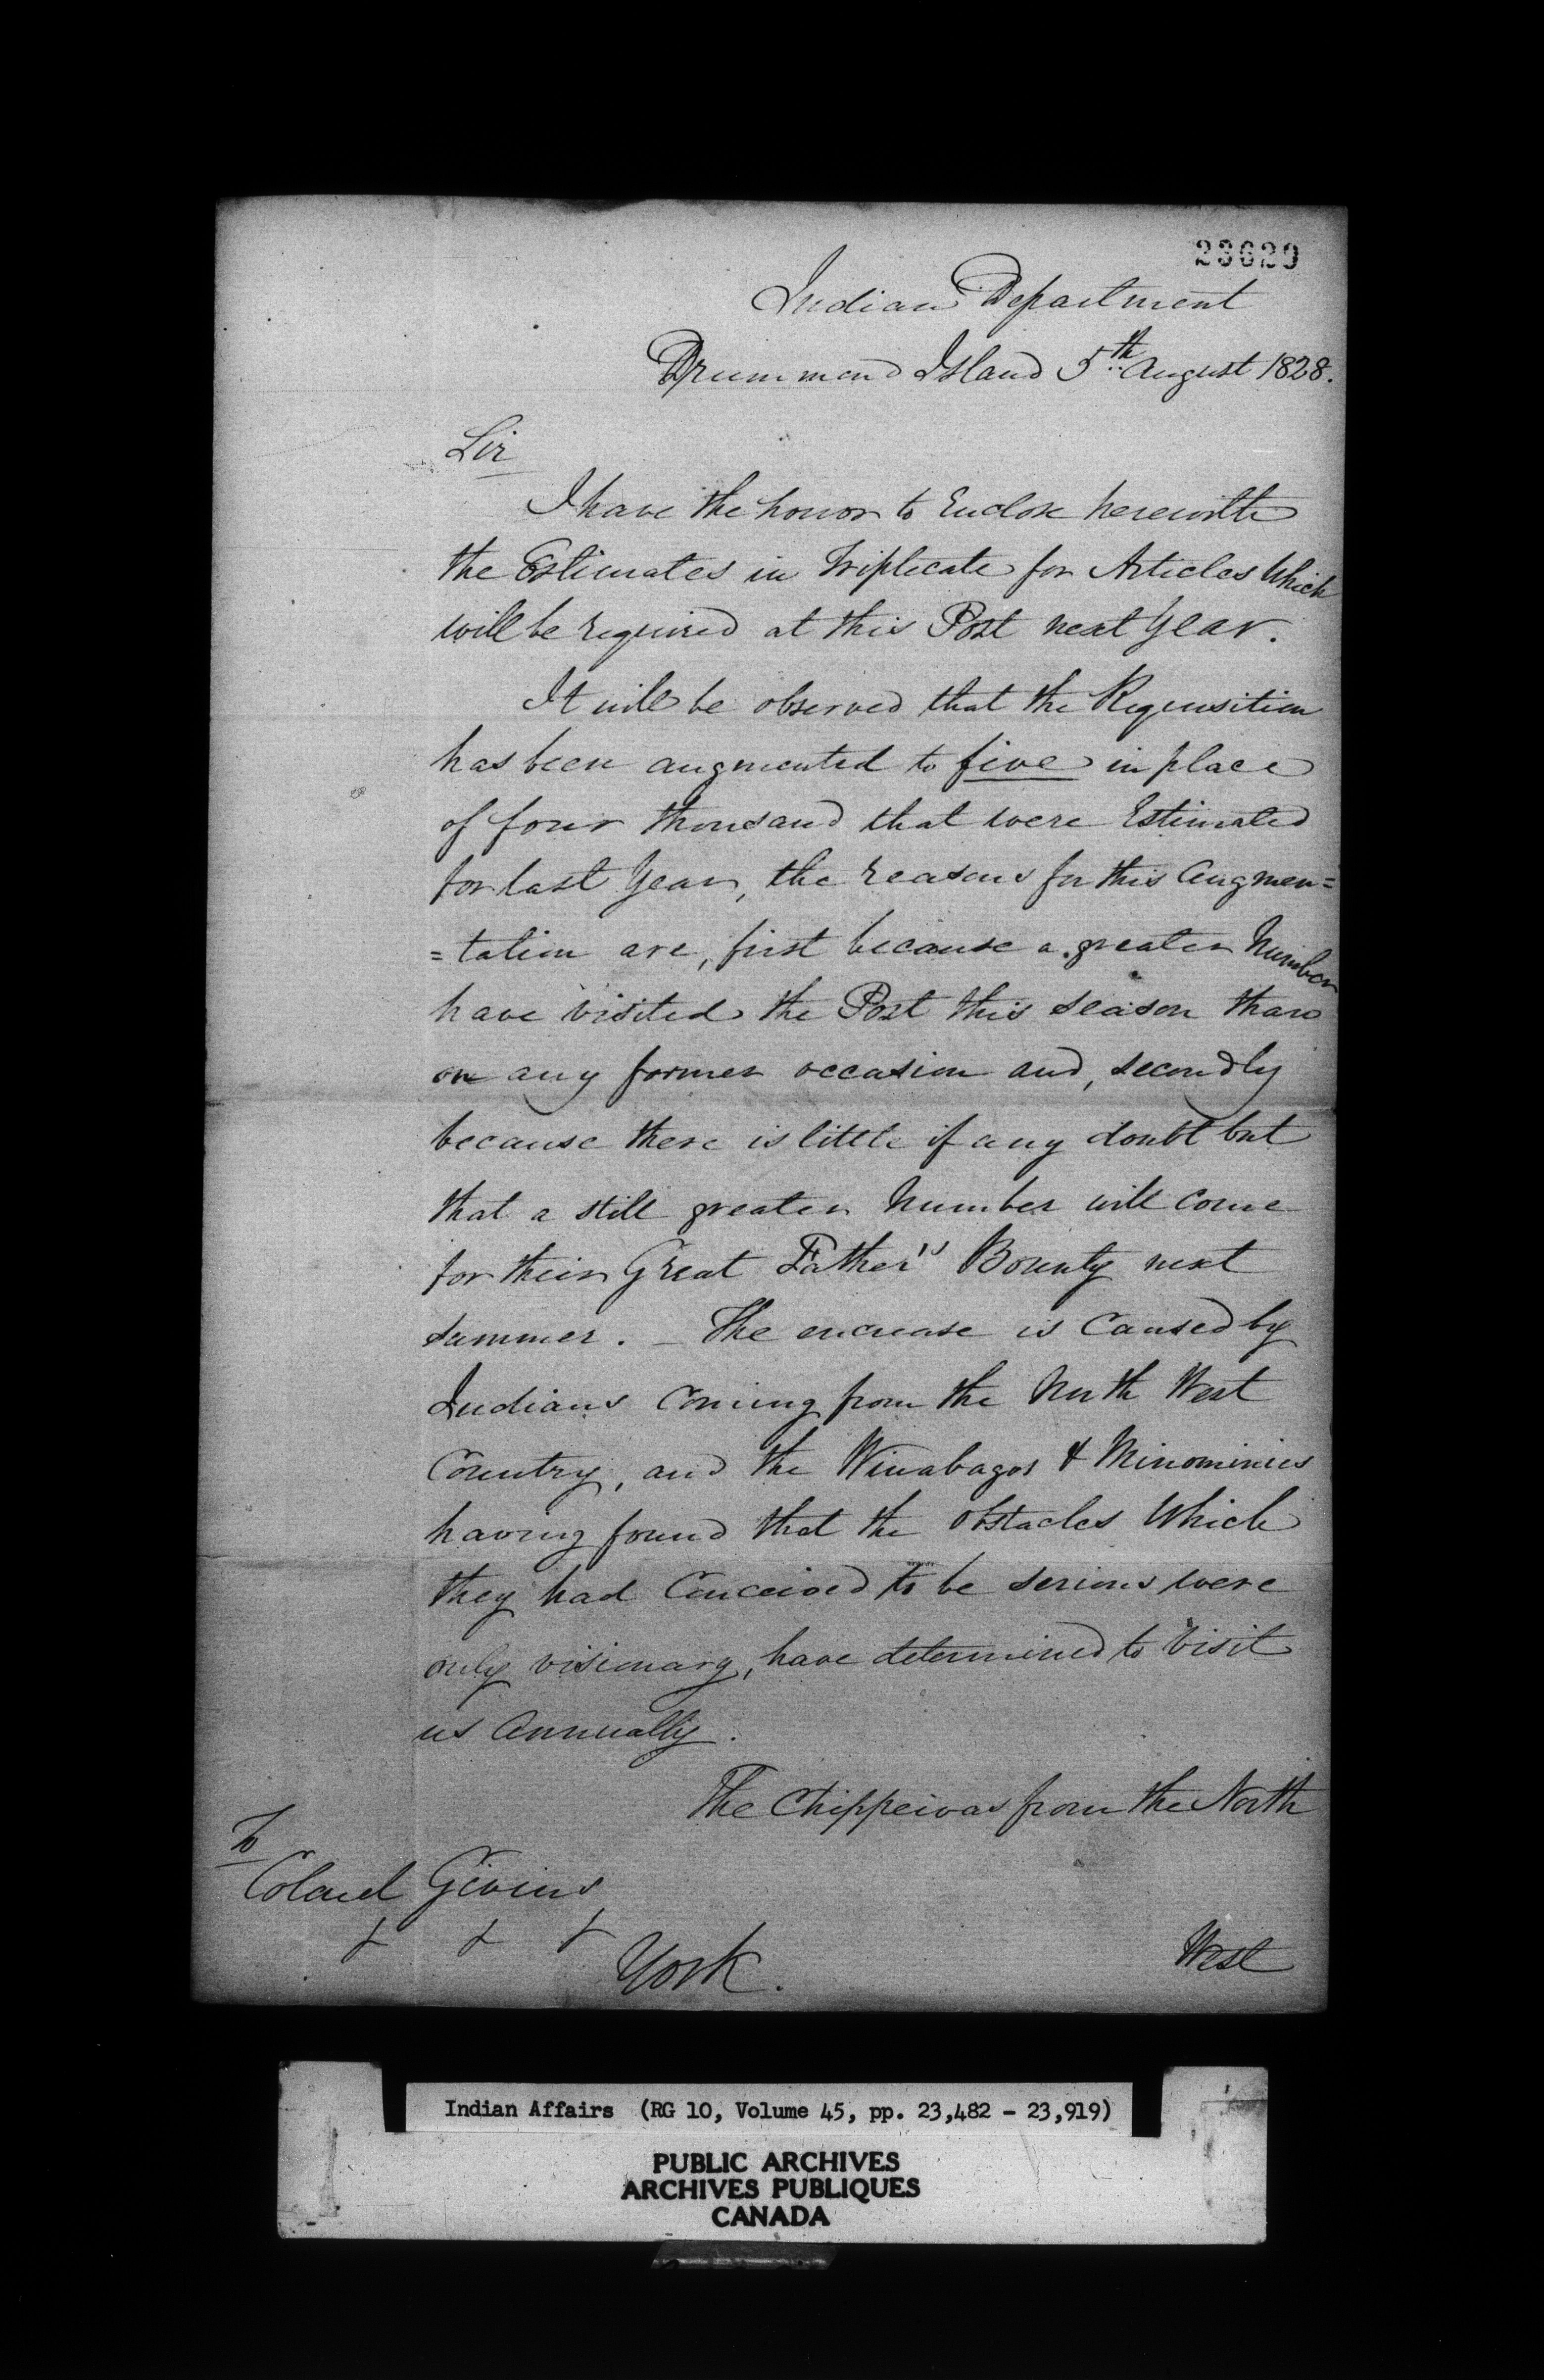 23620
Indian Department
Drummond Island 5th August 1828.
Sir
I have the honor to Enclose herewith
the Estimates in Triplicate for Articles Which
will be required at this Post next Year.
It will be observed that the Requisition
has been augmented to five in place
of four thousand that were Estimated
for last Year, the reasons for this Augmen=
=tation are, first because a greater Number
have visited the Post this season than
on any former occasion and, secondly
because there is little if any doubt but
that a still greater Number will come
for their Great Father's Bounty next
summer. _ The encrease is Caused by
Indians Coming from the North West
Country, and the Winabagos & Minominies
having found that the obstacles Which
they had Conceived to be serious were
only visionary, have determined to Visit
us Annually.
The Chippeiwas from the North
West
To
Colonel Givins
& & &
York.
Indian Affairs (RG 10, Volume 45, pp. 23,482 - 23,919)
PUBLIC ARCHIVES
ARCHIVES PUBLIQUES
CANADA